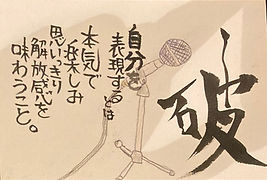 破
自分を
表現するとは
本気で
楽しみ
思いっきり
解放感を
味わうこと。